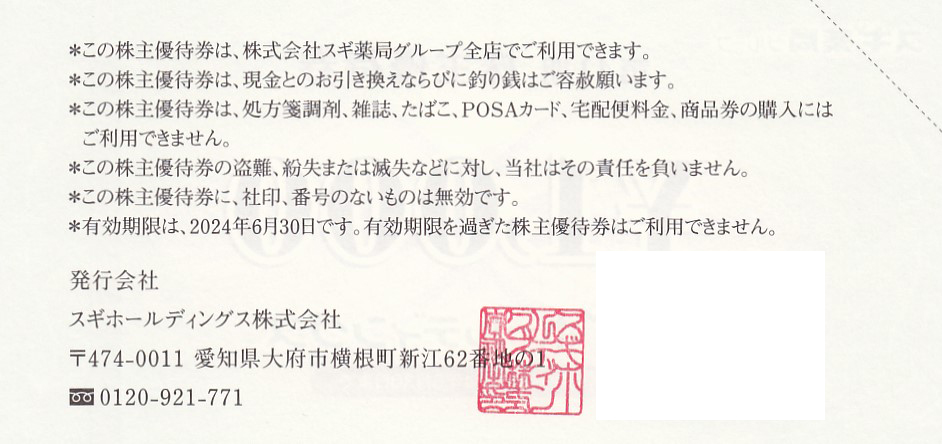 ＊この株主優待券は、株式会社スギ薬局グループ全店でご利用できます。
＊この株主優待券は、現金とのお引き換えならびに釣り銭はご容赦願います。
＊この株主優待券は、処方箋調剤、雑誌、たばこ、POSAカード、宅配便料金、商品券の購入には
ご利用できません。
＊この株主優待券の盗難、紛失または滅失などに対し、当社はその責任を負いません。
＊この株主優待券に、社印、番号のないものは無効です。
＊有効期限は、2024年6月30日です。有効期限を過ぎた株主優待券はご利用できません。
発行会社
スギホールディングス株式会社
〒474-0011 愛知県大府市横根町新江62番地の1
0120-921-771